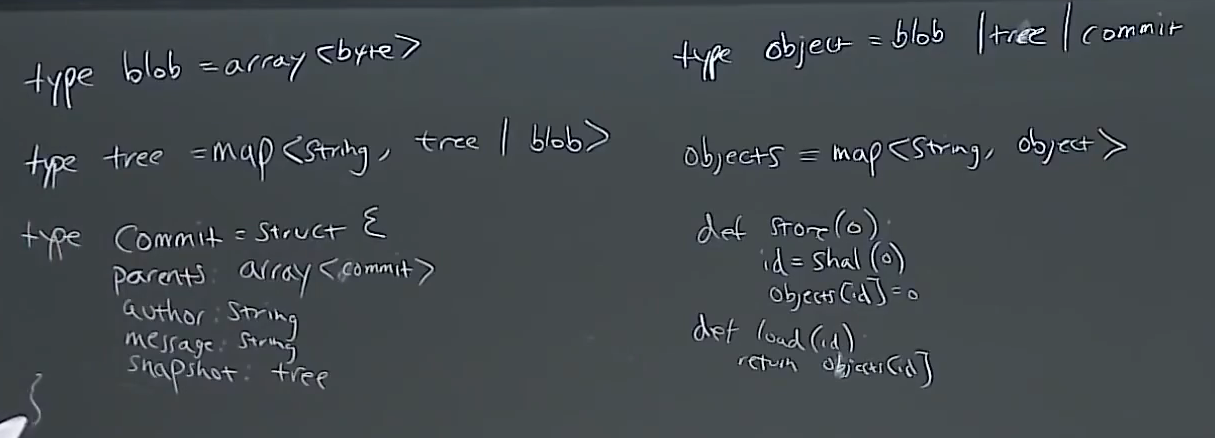 type blob = array<byte>
type tree = map<string, tree | blob>
type commit = struct {
parents: array<commit>
author: string
message: string
snapshot: tree
}
type object = blob | tree | commit
objects = map<string, object>
def store(o):
id = sha1(o)
objects[id] = o
def load(id)
return objects[id]